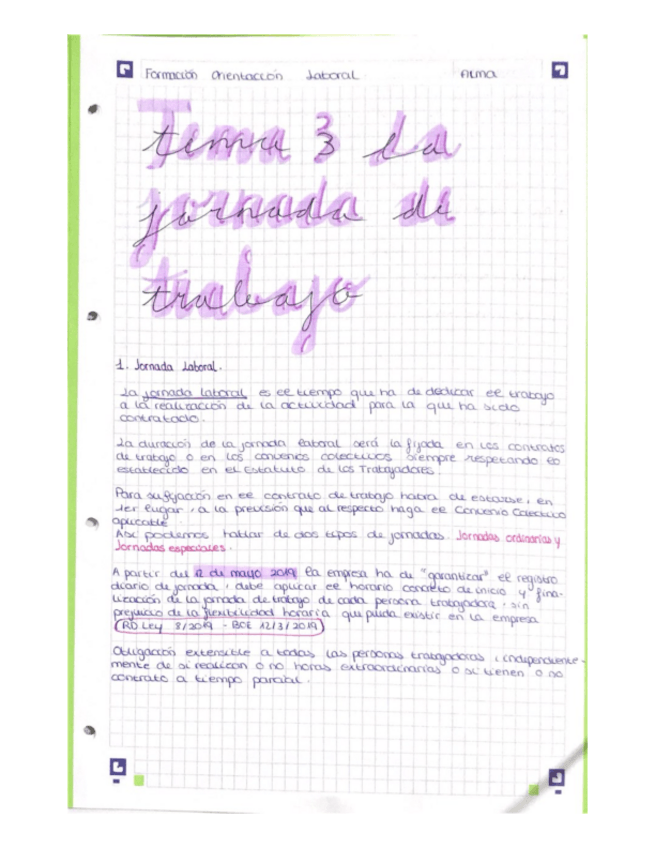 Formación Orientación Laboral. Alma
tema 3 La
jornada de
trabajo
1. Jornada Laboral.
La jornada laboral es el tiempo que ha de dedicar el trabajo
a la realización de la actividad para la que ha sido
contratado.
La duración de la jornada laboral será la fijada en los contratos
de trabajo o en los convenios colectivos siempre respetando lo
establecido en el Estatuto de los Trabajadores.
Para su fijación en el contrato de trabajo habrá de estarse, en
1er lugar, a la previsión que al respecto haga el Convenio Colectivo
aplicable.
Así podemos hablar de dos tipos de jornadas. Jornadas ordinarias y
Jornadas especiales.
A partir del 12 de mayo 2019 la empresa ha de "garantizar" el registro
diario de jornada, debe aplicar el horario concreto de inicio y fina-
lización de la jornada de trabajo de cada persona trabajadora, sin
prejuicio de la flexibilidad horaria que pueda existir en la empresa
(RD Ley 8/2019 - BOE 12/3/2019)
Obligación extensible a todas las personas trabajadoras, independiente-
mente de si realizan o no horas extraordinarias o si tienen o no
contrato a tiempo parcial.